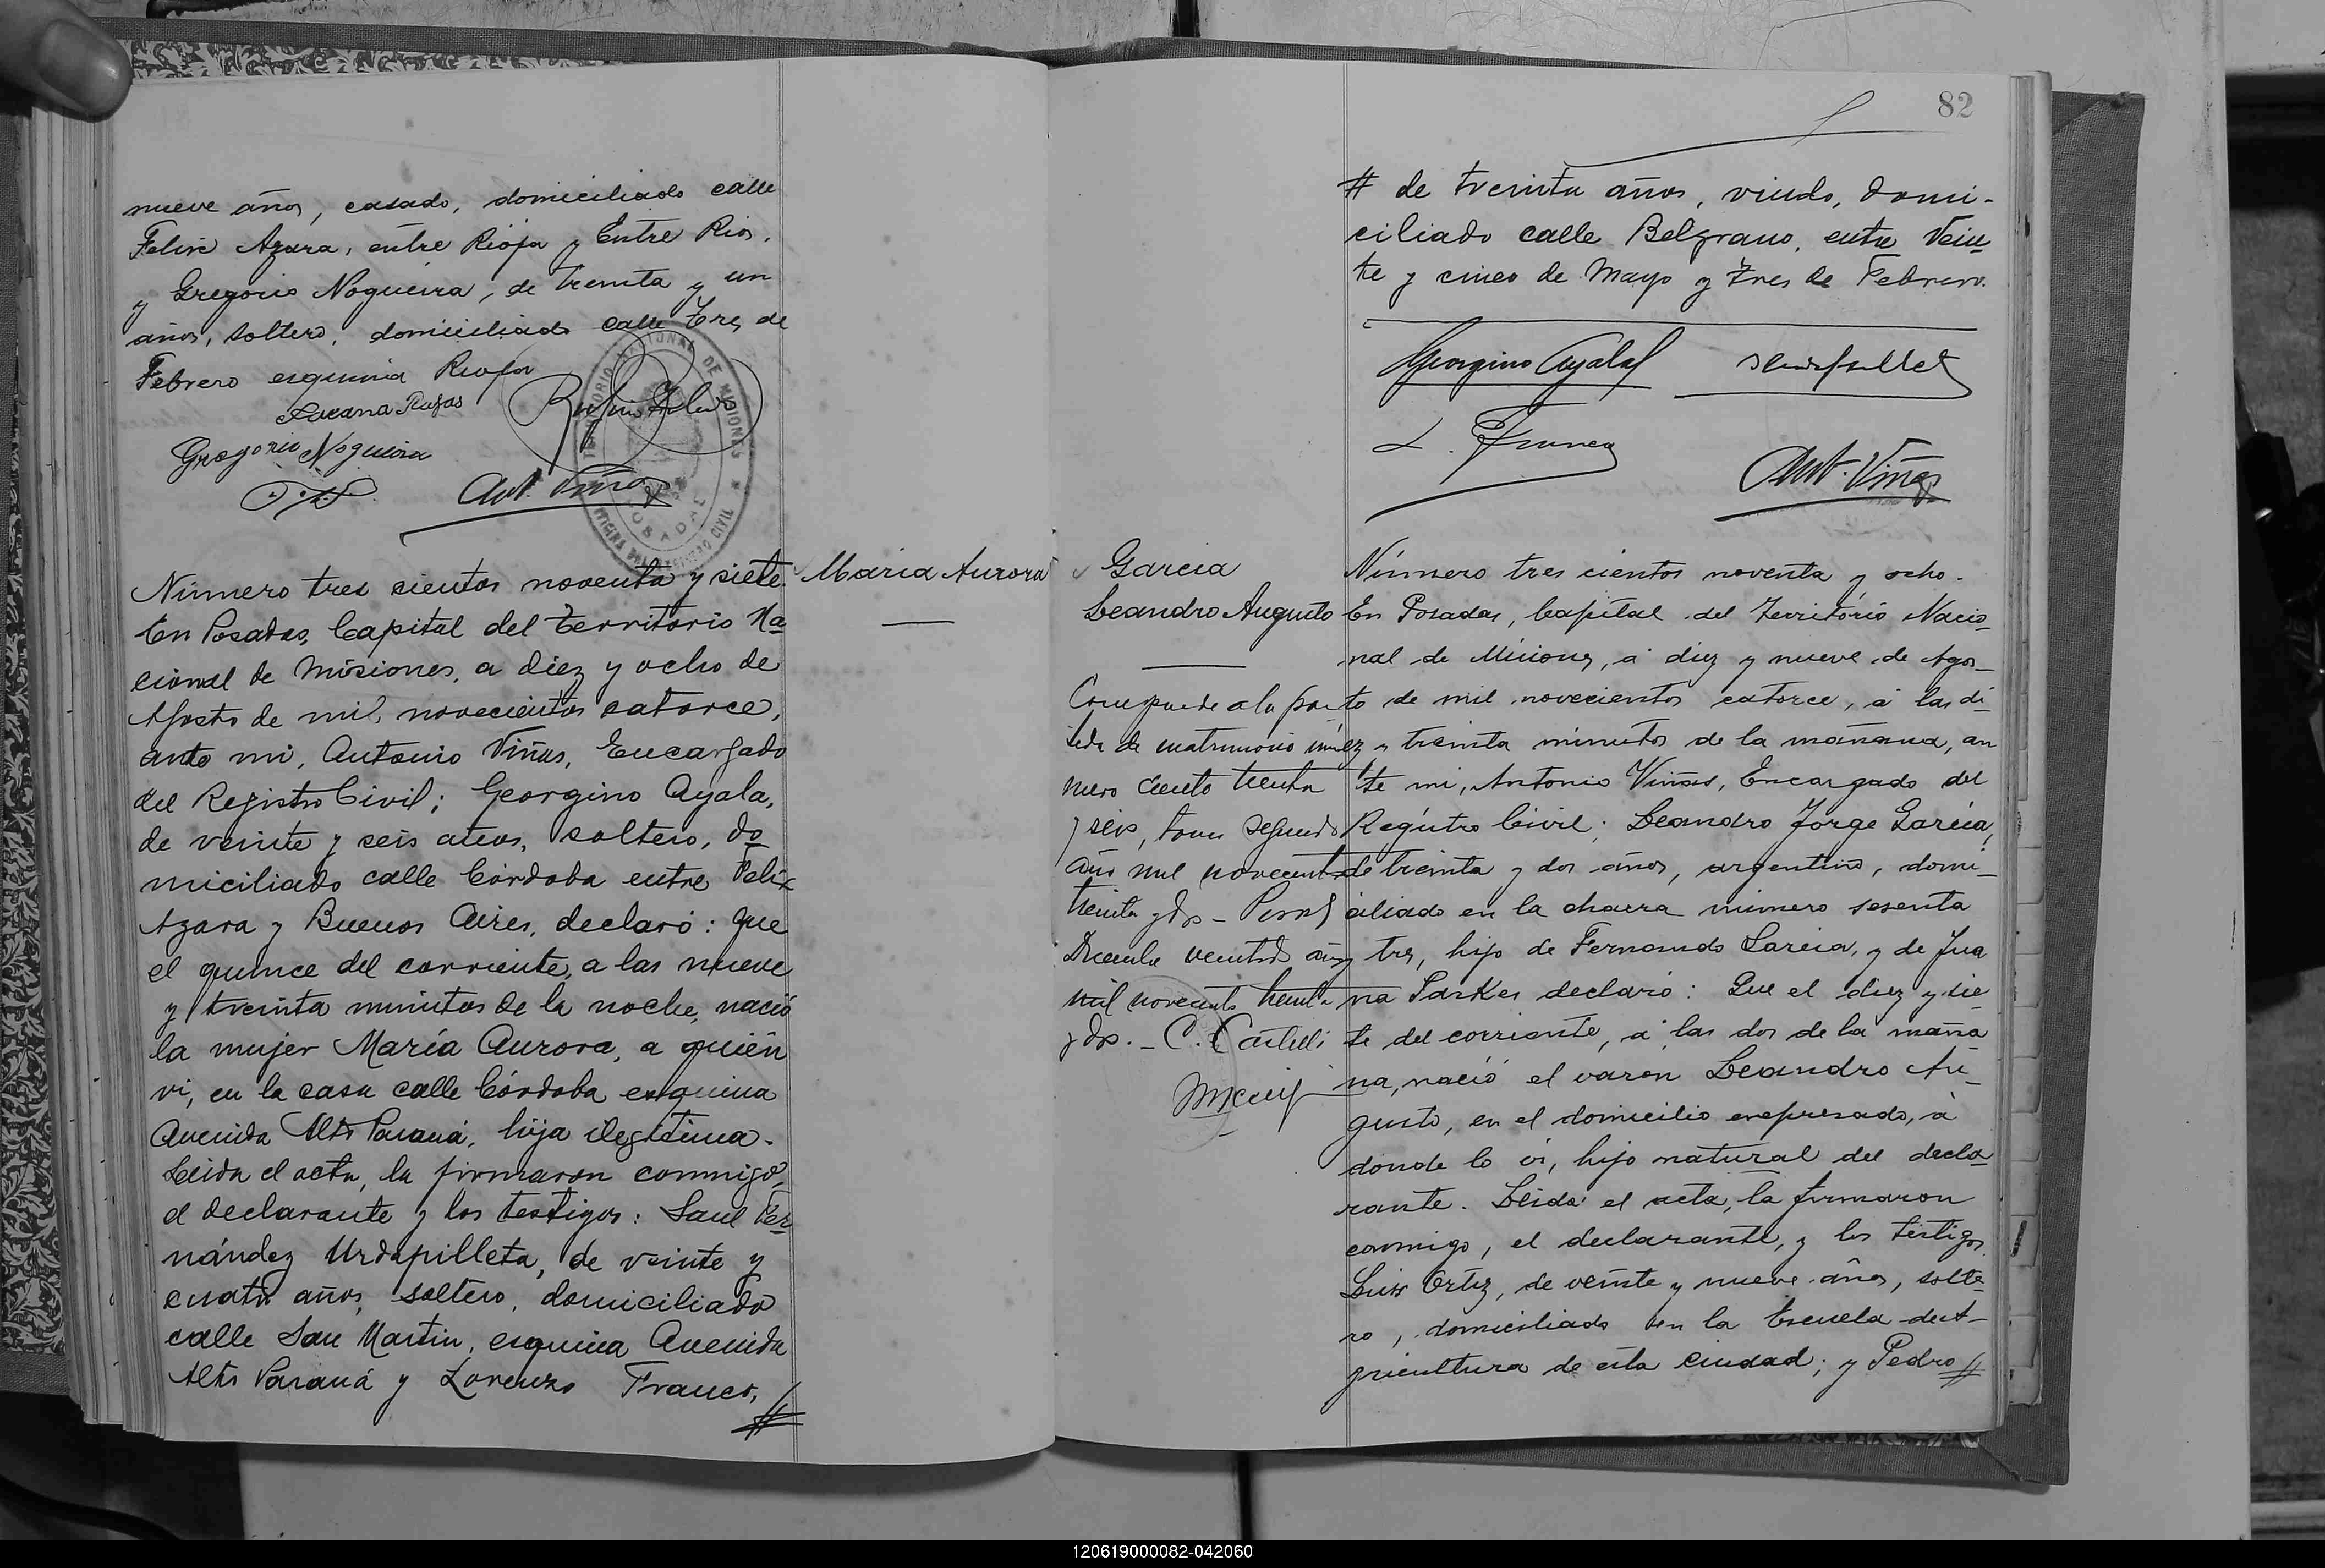 nueve años, casado, domiciliado calle
Felix Azara, entre Rioja y Entre Rios,
y Gregorio Nogueira, de treinta y un
años, soltero, domiciliado calle Tres de
Febrero esquina Rioja
Rojas
Gregorio Nogueira
Ant. Viñas
TERRITORIO NACIONAL DE MISIONES
POSADAS
Número tres cientos noventa y siete.
En Posadas, Capital del Territorio Na
cional de Misiones, a diez y ocho de
Agosto de mil novecientos catorce,
ante mi, Antonio Viñas, Encargado
del Registro Civil; Georgino Ayala,
de veinte y seis años, soltero, do
miciliado calle Córdoba entre Felix
Azara y Buenos Aires, declaró: que
el quince del corriente, a las nueve
y treinta minutos de la noche, nació
la mujer María Aurora, a quién
vi, en la casa calle Córdoba esquina
Avenida Alto Paraná, hija ilegitima.
Leida el acta, la firmaron conmigo,
el declarante y los testigos: Saul Fer
nández Urdapilleta, de veinte y
cuatro años, soltero, domiciliado
calle San Martin, esquina Avenida
Alto Paraná y Lorenzo Franco,
#
Maria Aurora
82
# de treinta años, viudo, domi-
ciliado calle Belgrano, entre Vein
te y cinco de Mayo y Tres de Febrero.
Georgino Ayala
L. Franco
Ant. Viñas
Garcia
Leandro Augusto
Corresponde a la par
tida de matrimonio nú
mero ciento treinta
y seis, tomo segundo
año mil novecientos
treinta y dos - Posadas
Diciembre veintidos año
mil novecientos treinta
y dos. - C.
Número tres cientos noventa y ocho.
En Posadas, Capital del Territorio Nacio
nal de Misiones, á diez y nueve de Agos
to de mil novecientos catorce, á las di
ez y treinta minutos de la mañana, an
te mi, Antonio Viñas, Encargado del
Registro Civil; Leandro Jorge Garcia,
de treinta y dos años, argentino, domi
ciliado en la chacra número sesenta
y tres, hijo de Fernando Garcia, y de Jua
na declaró: Que el diez y sie
te del corriente, á las dos de la maña
na, nació el varón Leandro Au
gusto, en el domicilio expresado, á
donde lo vi, hijo natural del decla
rante. Leida el acta, la firmaron
conmigo, el declarante, y los testigos
Luis Ortiz, de veinte y nueve años, solte-
ro, domiciliado en la Escuela de A-
gricultura de esta ciudad; y Pedro #
120619000082-042060